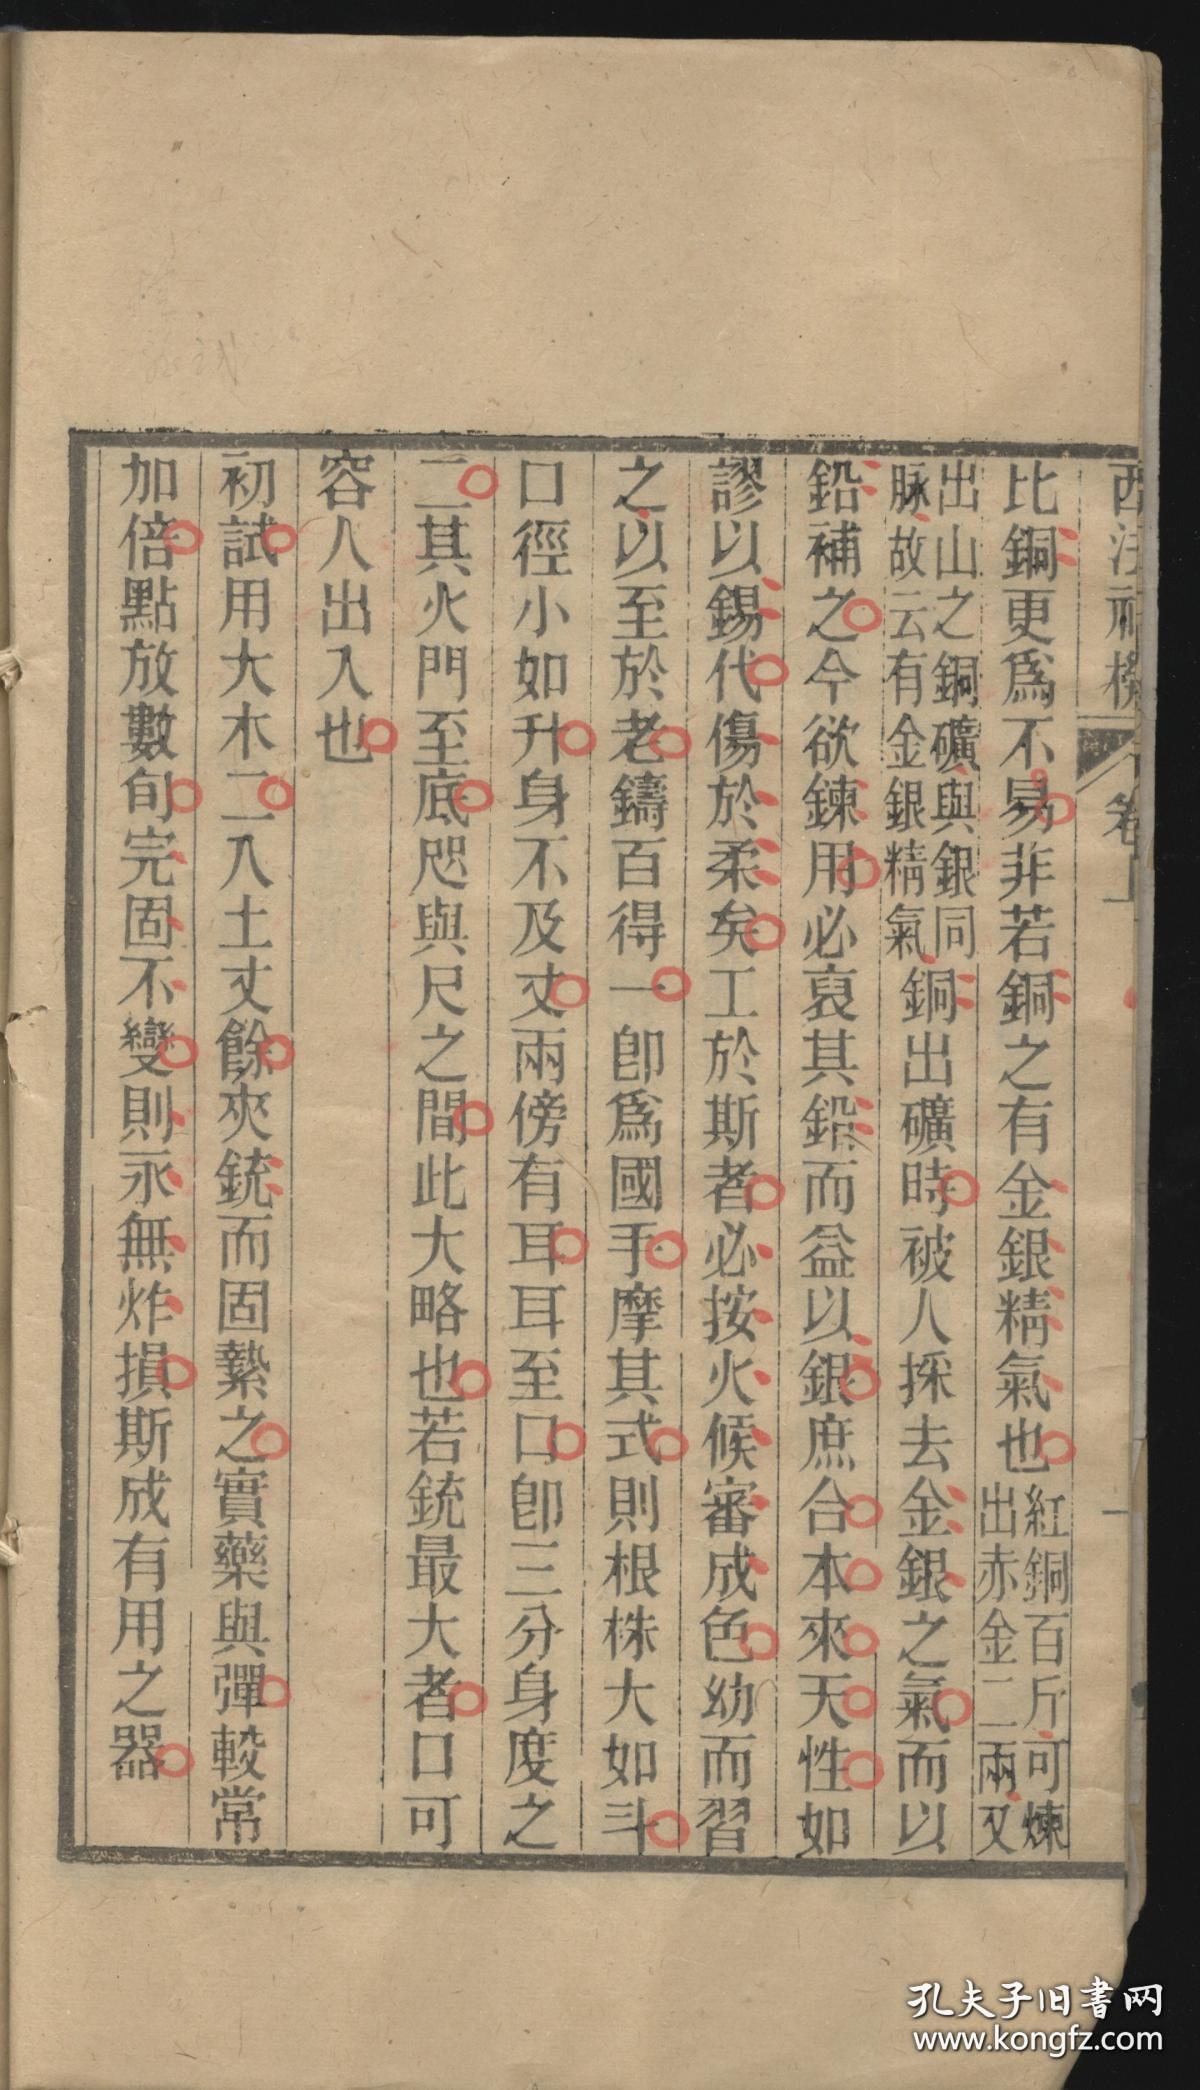 卷上
比銅更爲不易非若銅之有金銀精氣也紅銅百斤可煉出赤金二兩又
出山之銅礦與銀同脉故云有金銀精氣銅出礦時被人採去金銀之氣而以
鉛補之今欲鍊用必裒其鉛而益以銀庶合本來天性如
謬以錫代傷於柔矣工於斯者必按火候審成色幼而習
之以至於老鑄百得一卽爲國手摩其式則根株大如斗
口徑小如升身不及丈兩傍有耳耳至口卽三分身度之
二其火門至底咫與尺之間此大略也若銃最大者口可
容人出入也
初試用大木二入土丈餘夾銃而固縶之實藥與彈較常
加倍點放數旬完固不變則永無炸損斯成有用之器
孔夫子旧書网
www.kongfz.com